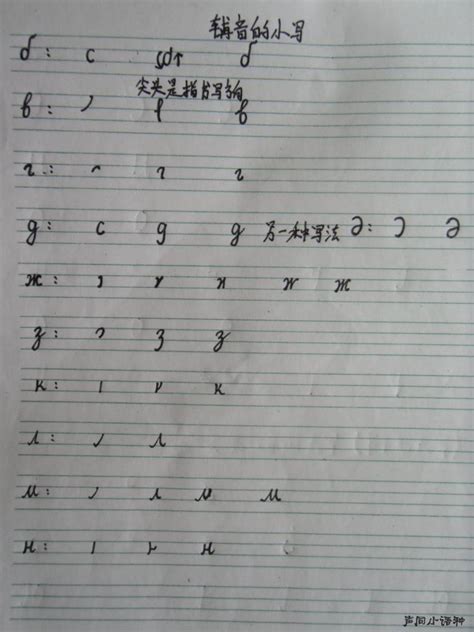 辅音的小写
б: с б
尖头是指书写方向
в: в
г: г г
д: с д д 另一种写法 ∂: ∂
ж: и ж
з: з з
к: к
л: л
м: л м
н: н
声同小语种